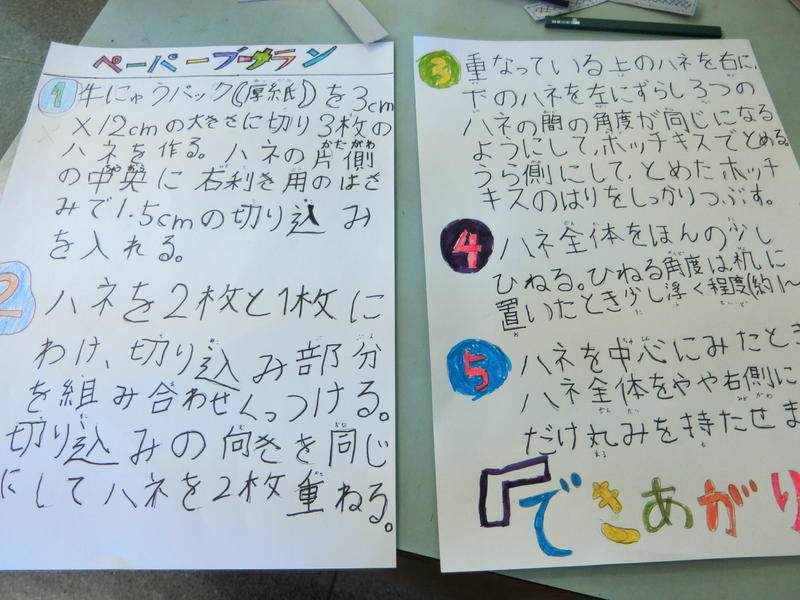 ペーパーブーメラン
1 牛にゅうパック(厚紙)を3cm
×12cmの大きさに切り3枚の
ハネを作る。ハネの片側
の中央に右利き用のはさ
みで1.5cmの切り込み
を入れる。
2 ハネを2枚と1枚に
わけ、切り込み部分
を組み合わせくっつける。
切り込みの向きを同じ
にしてハネを2枚重ねる。
3 重なっている上のハネを右に、
下のハネを左にずらし3つの
ハネの間の角度が同じになる
ようにして、ホッチキスでとめる。
うら側にして、とめたホッチ
キスのはりをしっかりつぶす。
4 ハネ全体をほんの少し
ひねる。ひねる角度は机に
置いたとき少し浮く程度(約1〜
5 ハネを中心にみたとき
ハネ全体をやや右側に
だけ丸みを持たせま
「できあがり